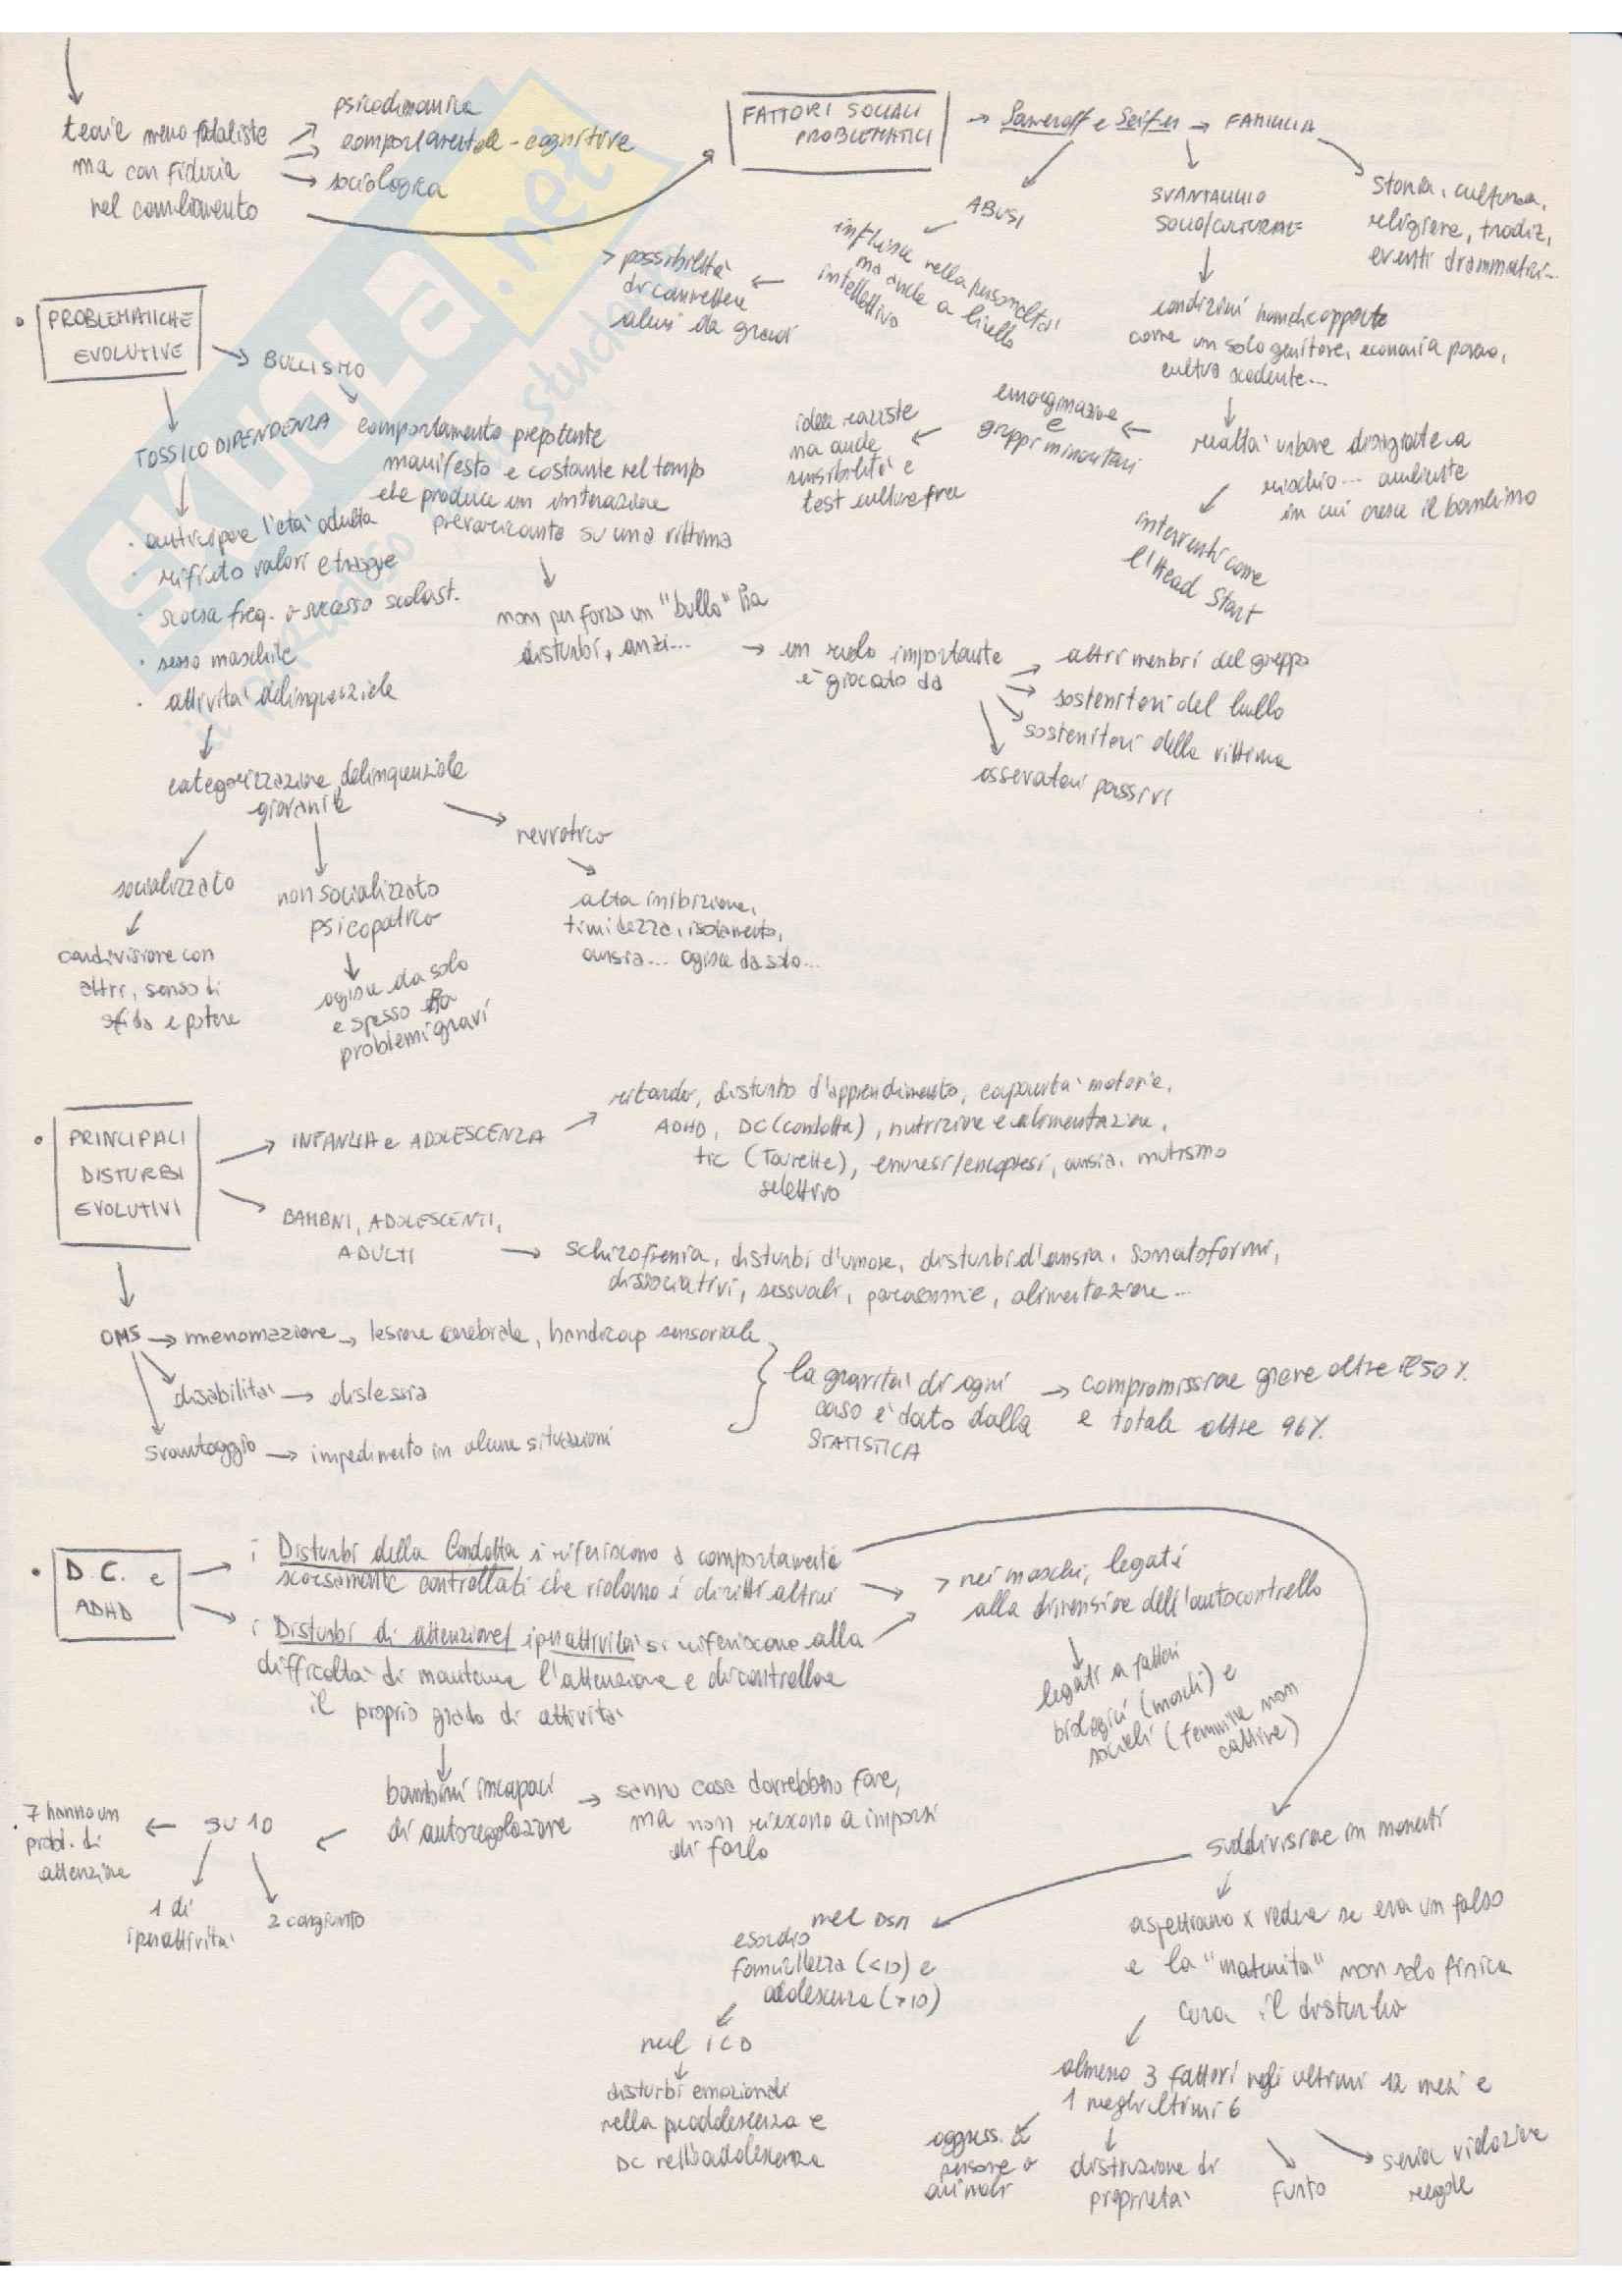 teorie meno fataliste
ma con fiducia
nel cambiamento
psicodinamica
comportamentale - cognitive
sociologica
FATTORI SOCIALI
PROBLEMATICI
Sameroff e Seifer
FAMIGLIA
ABUSI
influisce nella personalità
ma anche a livello
intellettivo
> possibilità
di commettere
abusi da grandi
SVANTAGGIO
SOCIO/CULTURALE
condizioni handicappate
come un solo genitore, economia
cultura scadente...
storia, cultura,
religione, tradiz,
eventi drammatici...
realtà urbane disagiate a
rischio... ambiente
in cui cresce il bambino
interventi come
l'Head Start
emarginazione
e
gruppi minoritari
idee razziste
ma anche
sensibilità e
test culture free
PROBLEMATICHE
EVOLUTIVE
BULLISMO
comportamento prepotente
manifesto e costante nel tempo
che produce un interazione
prevaricante su una vittima
non per forza un "bullo" ha
disturbi, anzi...
un ruolo importante
è giocato da
altri membri del gruppo
sostenitori del bullo
sostenitori della vittima
osservatori passivi
TOSSICODIPENDENZA
· anticipare l'età adulta
· rifiuto valori e
· scarsa freq. o successo scolast.
· sesso maschile
· attività delinquenziale
categorizzazione delinquenziale
giovanile
socializzato
condivisione con
altri, senso di
sfida e potere
non socializzato
psicopatico
agisce da solo
e spesso ha
problemi gravi
nevrotico
alta inibizione,
timidezza, isolamento,
ansia... agisce da solo...
PRINCIPALI
DISTURBI
EVOLUTIVI
INFANZIA e ADOLESCENZA
ritardo, disturbo d'apprendimento, capacità motorie,
ADHD, DC (condotta), nutrizione e alimentazione,
tic (Tourette), enuresi/encopresi, ansia, mutismo
selettivo
BAMBINI, ADOLESCENTI,
ADULTI
schizofrenia, disturbi d'umore, disturbi d'ansia, somatoformi,
dissociativi, sessuali, parasonnie, alimentazione...
OMS
menomazione
lesione cerebrale, handicap sensoriale
disabilità
dislessia
svantaggio
impedimento in alcune situazioni
la gravità di ogni
caso è dato dalla
STATISTICA
compromissione grave oltre il 50%
e totale oltre 96%
D.C. e
ADHD
i Disturbi della Condotta si riferiscono a comportamenti
scarsamente controllati che violano i diritti altrui
i Disturbi di attenzione/iperattività si riferiscono alla
difficoltà di mantenere l'attenzione e di controllare
il proprio grado di attività
> nei maschi, legati
alla dimensione dell'autocontrollo
legati a fattori
biologici (maschi) e
sociali (femmine non
cattive)
bambini incapaci
di autoregolazione
sanno cosa dovrebbero fare,
ma non riescono a imporsi
di farlo
SU 10
7 hanno un
probl. di
attenzione
1 di
iperattività
2 congiunto
suddivisione in momenti
nel DSM
esordio
fanciullezza (<10) e
adolescenza (>10)
nel ICD
disturbi emozionali
nella preadolescenza e
DC nell'adolescenza
aspettiamo x vedere se era un falso
e la "maturità" non solo fisica
cura il disturbo
almeno 3 fattori negli ultimi 12 mesi e
1 negli ultimi 6
aggress. a
persone o
animali
distruzione di
proprietà
furto
seria violazione
regole
SKUOLA.net